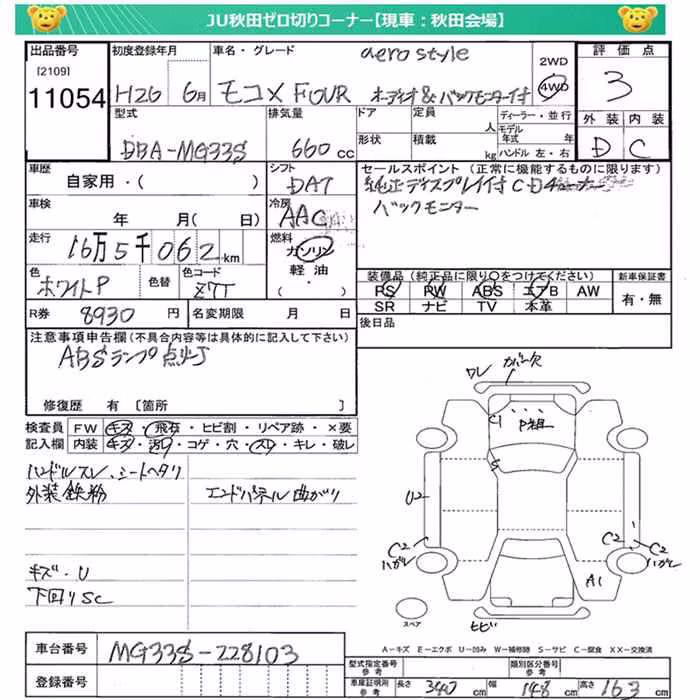 JU秋田ゼロ切りコーナー【現車：秋田会場】
出品番号 初度登録年月 車名・グレード aero style 2WD 評価点
[2109]
11054 H26 6月 モコX FOUR オーディオ&バックモニター付 4WD 3
型式 排気量 ドア 定員 人 ディーラー・並行 外装 内装
DBA-MG33S 660cc 形状 積載 kg モデル年式 年 ハンドル 左・右 D C
車歴 シフト セールスポイント（正常に機能するものに限ります）
自家用・( ) DAT 純正ディスプレイ付CDチューナー
車検 冷房 バックモニター
年 月( 日) AAC
走行 燃料
16万5千062km ガソリン
軽油
・( )
色 色替 色コード 装備品（純正品に限り○をつけてください） 新車保証書
ホワイトP Z7T PS PW ABS エアB AW 有・無
SR ナビ TV 本革
R券 8930円 名変期限 月 日 後日品
注意事項申告欄（不具合内容等は具体的に記入して下さい）
ABSランプ点灯
修復歴 有〔箇所 〕
検査員 FW キズ・飛石・ヒビ割・リペア跡・×要
記入欄 内装 キズ・汚れ・コゲ・穴・スレ・キレ・破レ
ハンドルスレ、シートヘタリ
外装鉄粉 エンドパネル曲がり
キズ・U
下回りSC
ワレ カバー欠
C1 P粗
S
U2
C2 ハガレ
C2 ハガレ
A1
スペア
ヒビ
A－キズ E－エクボ U－凹み W－補修跡 S－サビ C－腐食 XX－交換済
車台番号 MG33S-228103
登録番号
型式指定番号 参考 類別区分番号 参考
車庫証明用 参考 長さ 340cm 幅 148cm 高さ 163cm